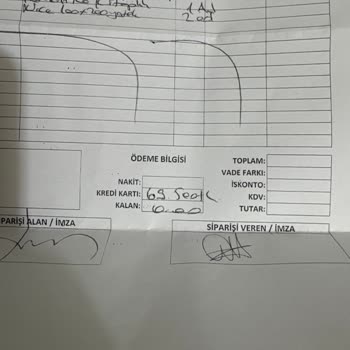 1 Ad
Nice 200x200 yatak 2 ad
ÖDEME BİLGİSİ
TOPLAM:
VADE FARKI:
NAKİT:
İSKONTO:
KREDİ KARTI: 69.500tL
KDV:
KALAN:
TUTAR:
PARİŞİ ALAN / İMZA
SİPARİŞİ VEREN / İMZA